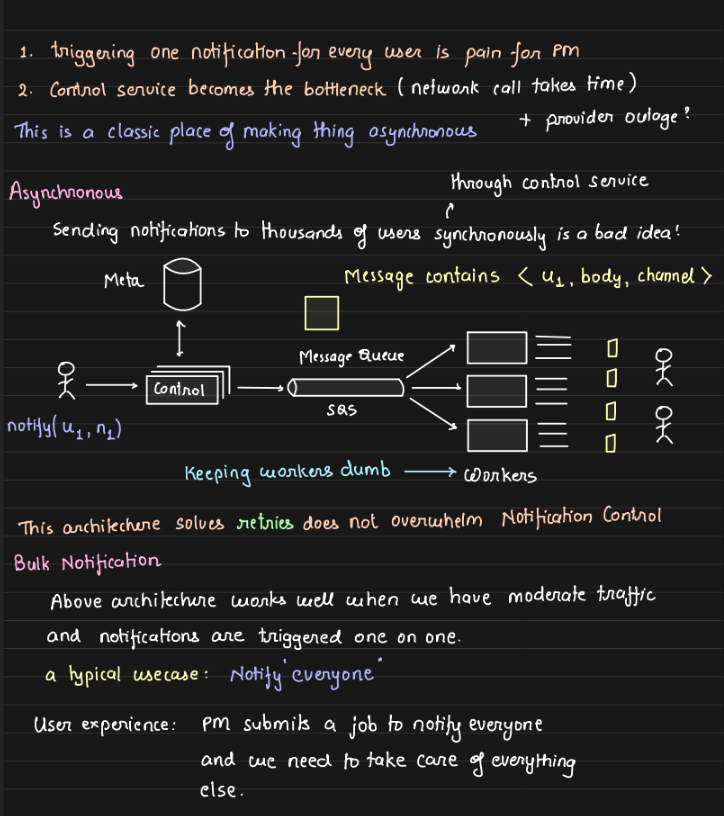 1. triggering one notification for every user is pain for PM
2. Control service becomes the bottleneck (network call takes time)
+ provider outage?
This is a classic place of making thing asynchronous
Asynchronous
through control service
Sending notifications to thousands of users synchronously is a bad idea!
Meta
Message contains < u1, body, channel >
Message Queue
Control
SQS
notify(u1, n1)
Keeping workers dumb → Workers
This architecture solves retries does not overwhelm Notification Control
Bulk Notification
Above architecture works well when we have moderate traffic
and notifications are triggered one on one.
a typical usecase: Notify "everyone"
User experience: PM submits a job to notify everyone
and we need to take care of everything
else.